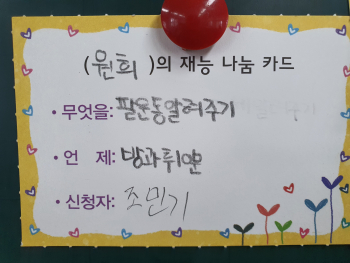 (원희)의 재능 나눔 카드
• 무엇을: 팔운동알려주기
• 언 제: 방과후
• 신청자: 조민기